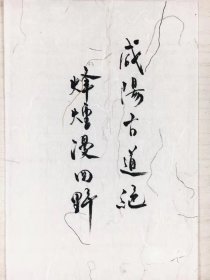 咸陽古道絕
烽煙漫四野